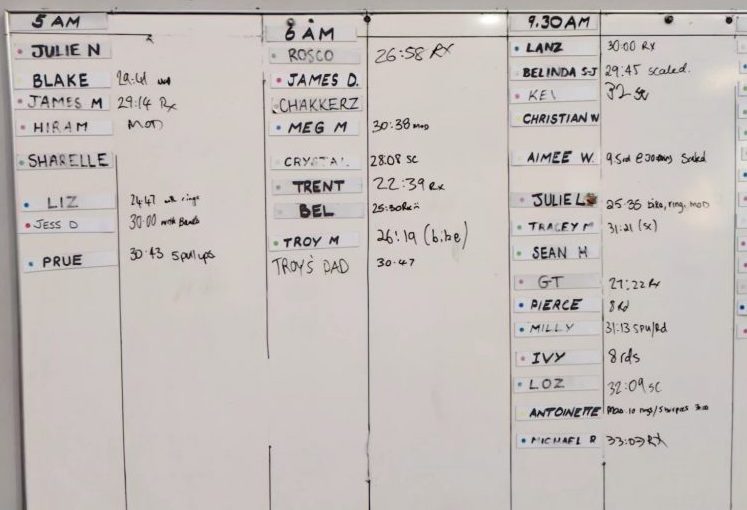 5 AM
JULIE N
BLAKE
JAMES M 29:14 Rx
HIRAM MOD
SHARELLE
LIZ 24:47 rings
JESS D 30:00 with Bands
PRUE 30:43 5pullups
6 AM
ROSCO 26:58 RX
JAMES D.
CHAKKERZ
MEG M 30:38 MOD
CRYSTAL 28:08 SC
TRENT 22:39 Rx
BEL 25:30 Rx
TROY M 26:19 (bike)
TROY'S DAD 30:47
9.30AM
LANZ 30:00 Rx
BELINDA S-J 29:45 scaled.
KEV 32 sc
CHRISTIAN W
AIMEE W. Scaled
JULIE L 25:35 bike, ring, mod
TRACEY M 31:21 (sc)
SEAN H
GT 27:22 Rx
PIERCE 8 Rd
MILLY 31:13 5PU/Rd
IVY 8rds
LOZ 32:09 SC
ANTOINETTE
MICHAEL R 33:03 RX